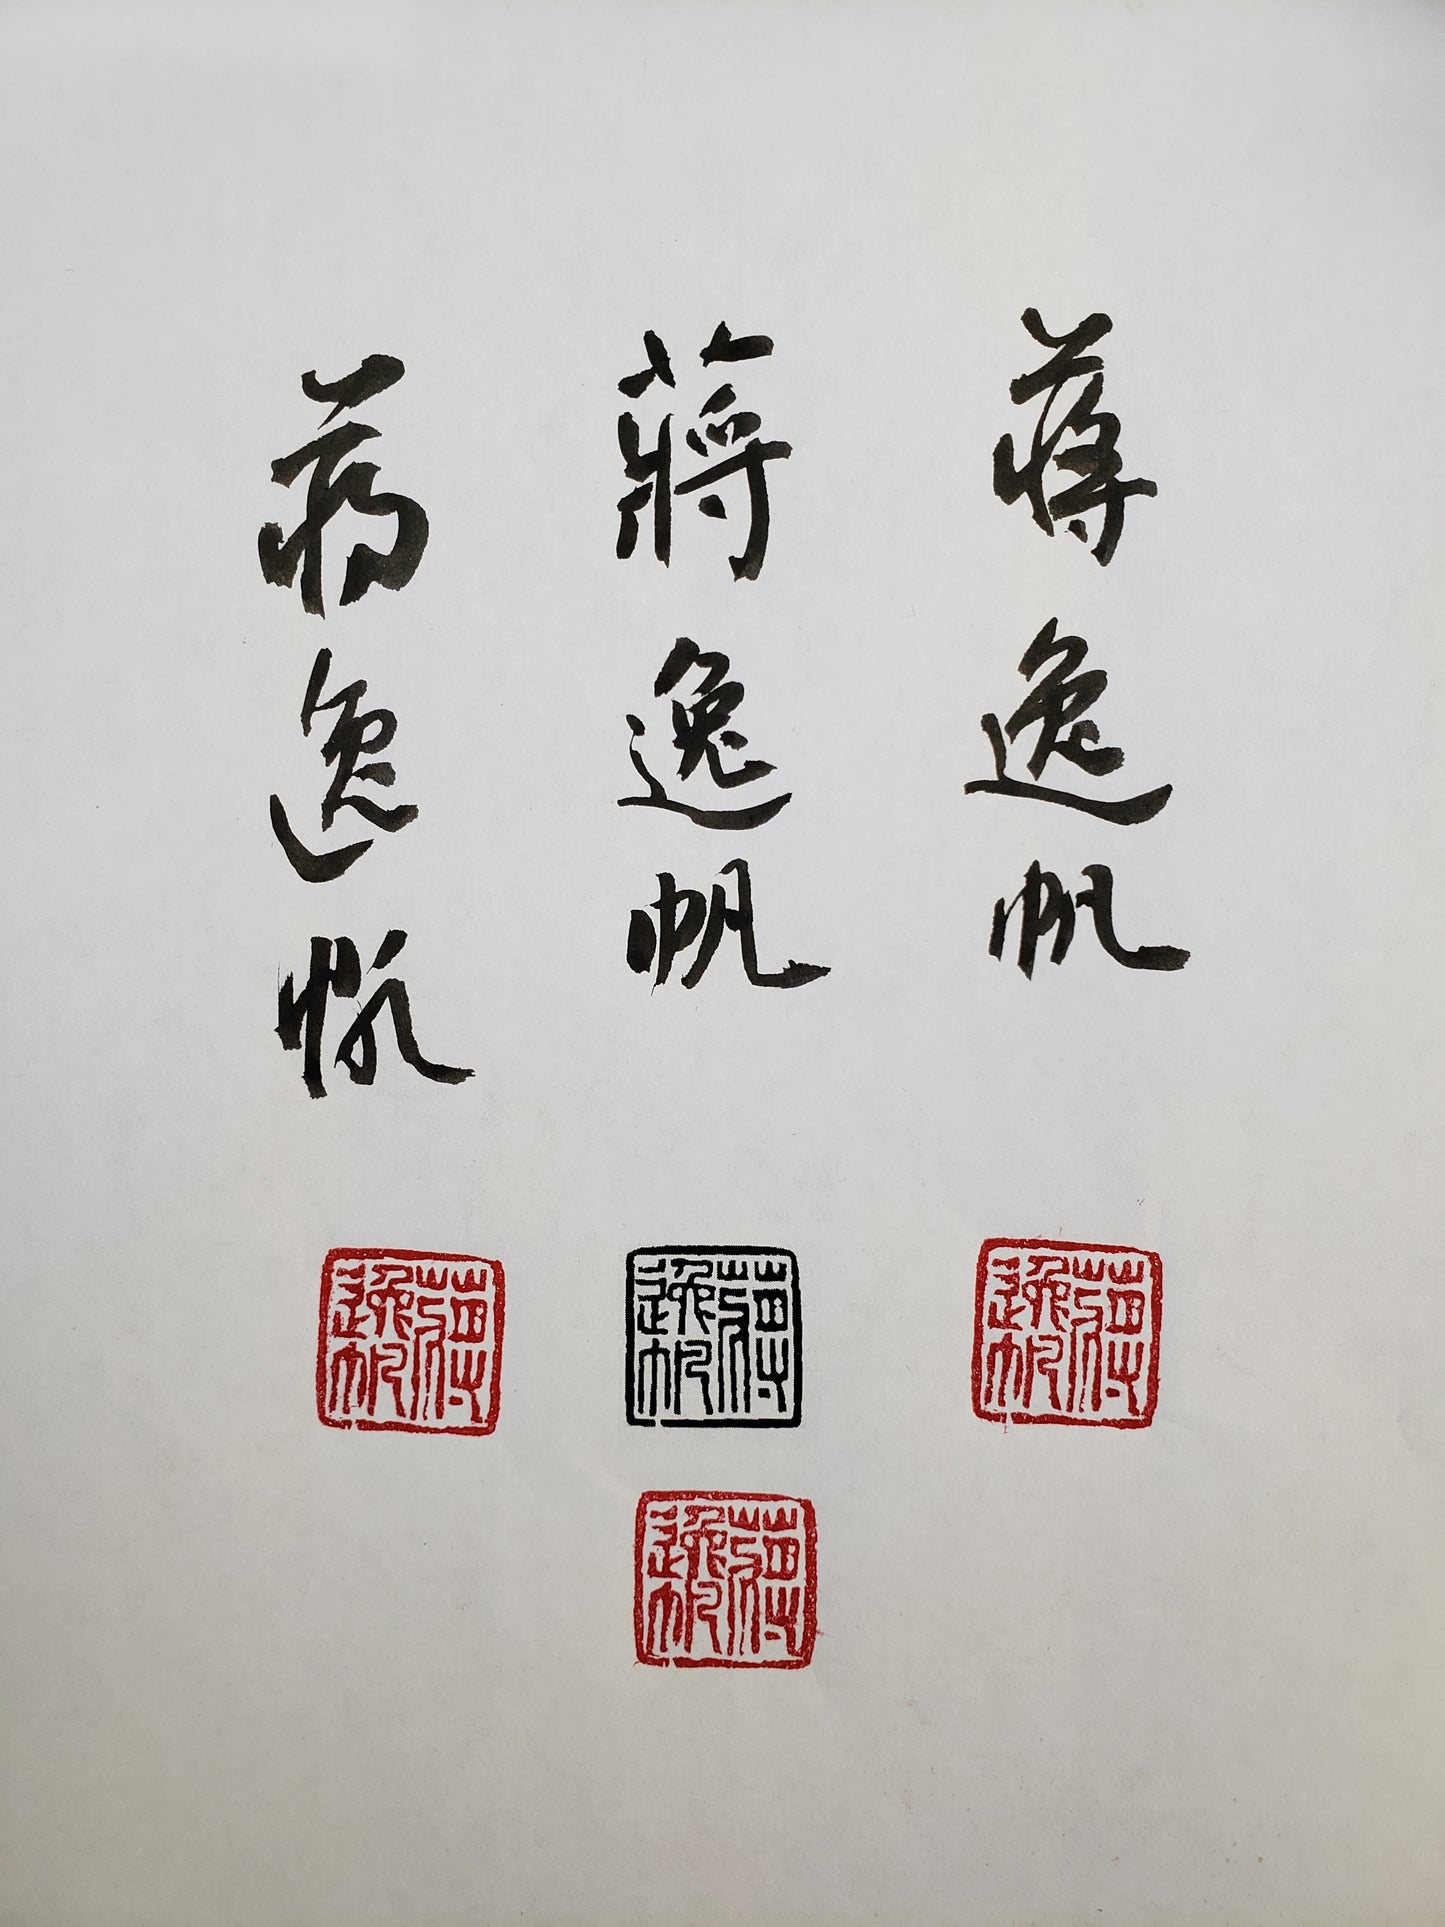 蔣逸帆
蔣逸帆
蔣逸帆
蔣逸帆
蔣逸帆
蔣逸帆
蔣逸帆